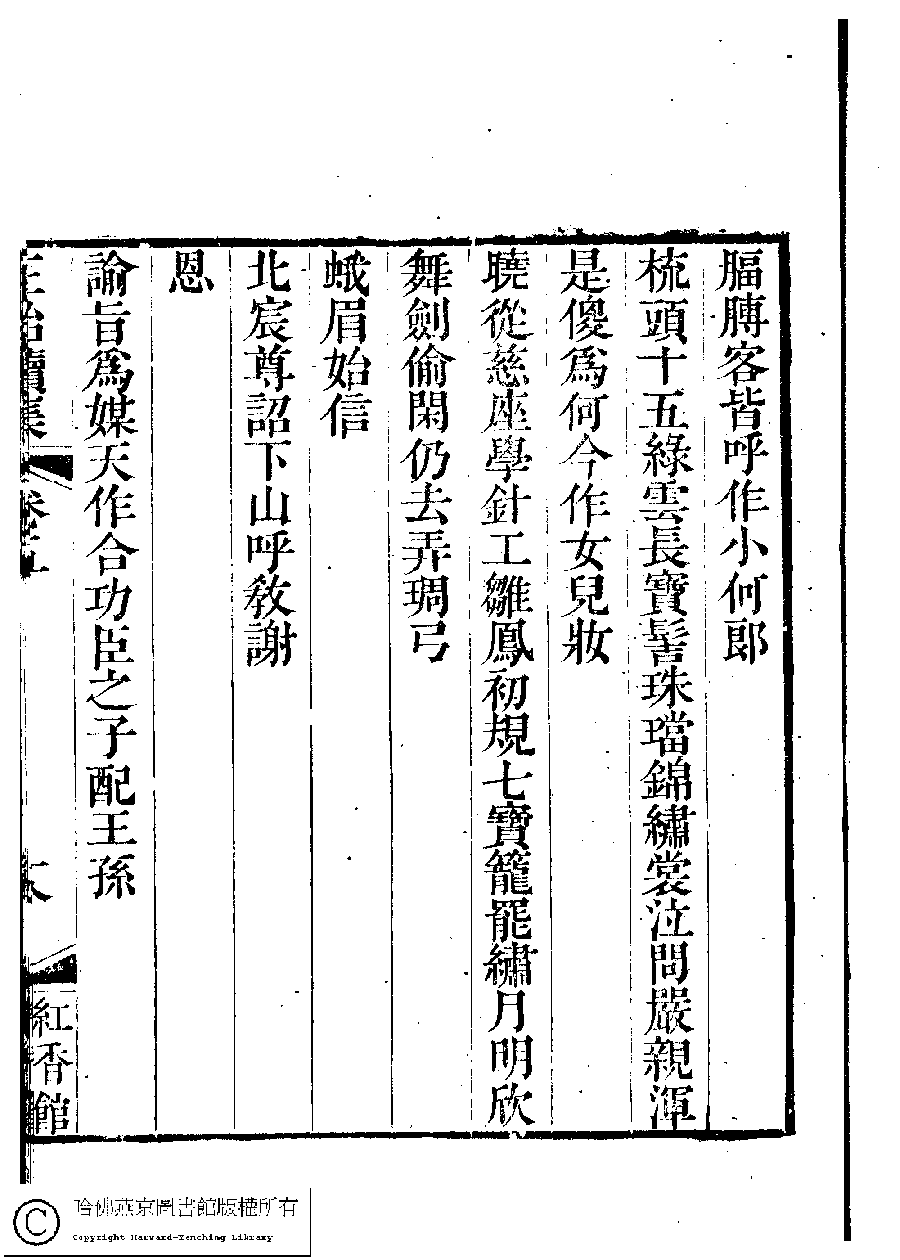 腷膊客皆呼作小何郎
梳頭十五綠雲長寶髻珠璫錦繡裳泣問嚴親渾
是儍爲何今作女兒妝
曉從慈座學針工雛鳳初規七寶籠罷繡月明欣
舞劍偷閑仍去弄琱弓
蛾眉始信
北宸尊詔下山呼教謝
恩
諭旨爲媒天作合功臣之子配王孫
正始續集 卷五
紅香館
哈佛燕京圖書館版權所有
Copyright Harvard-Yenching Library